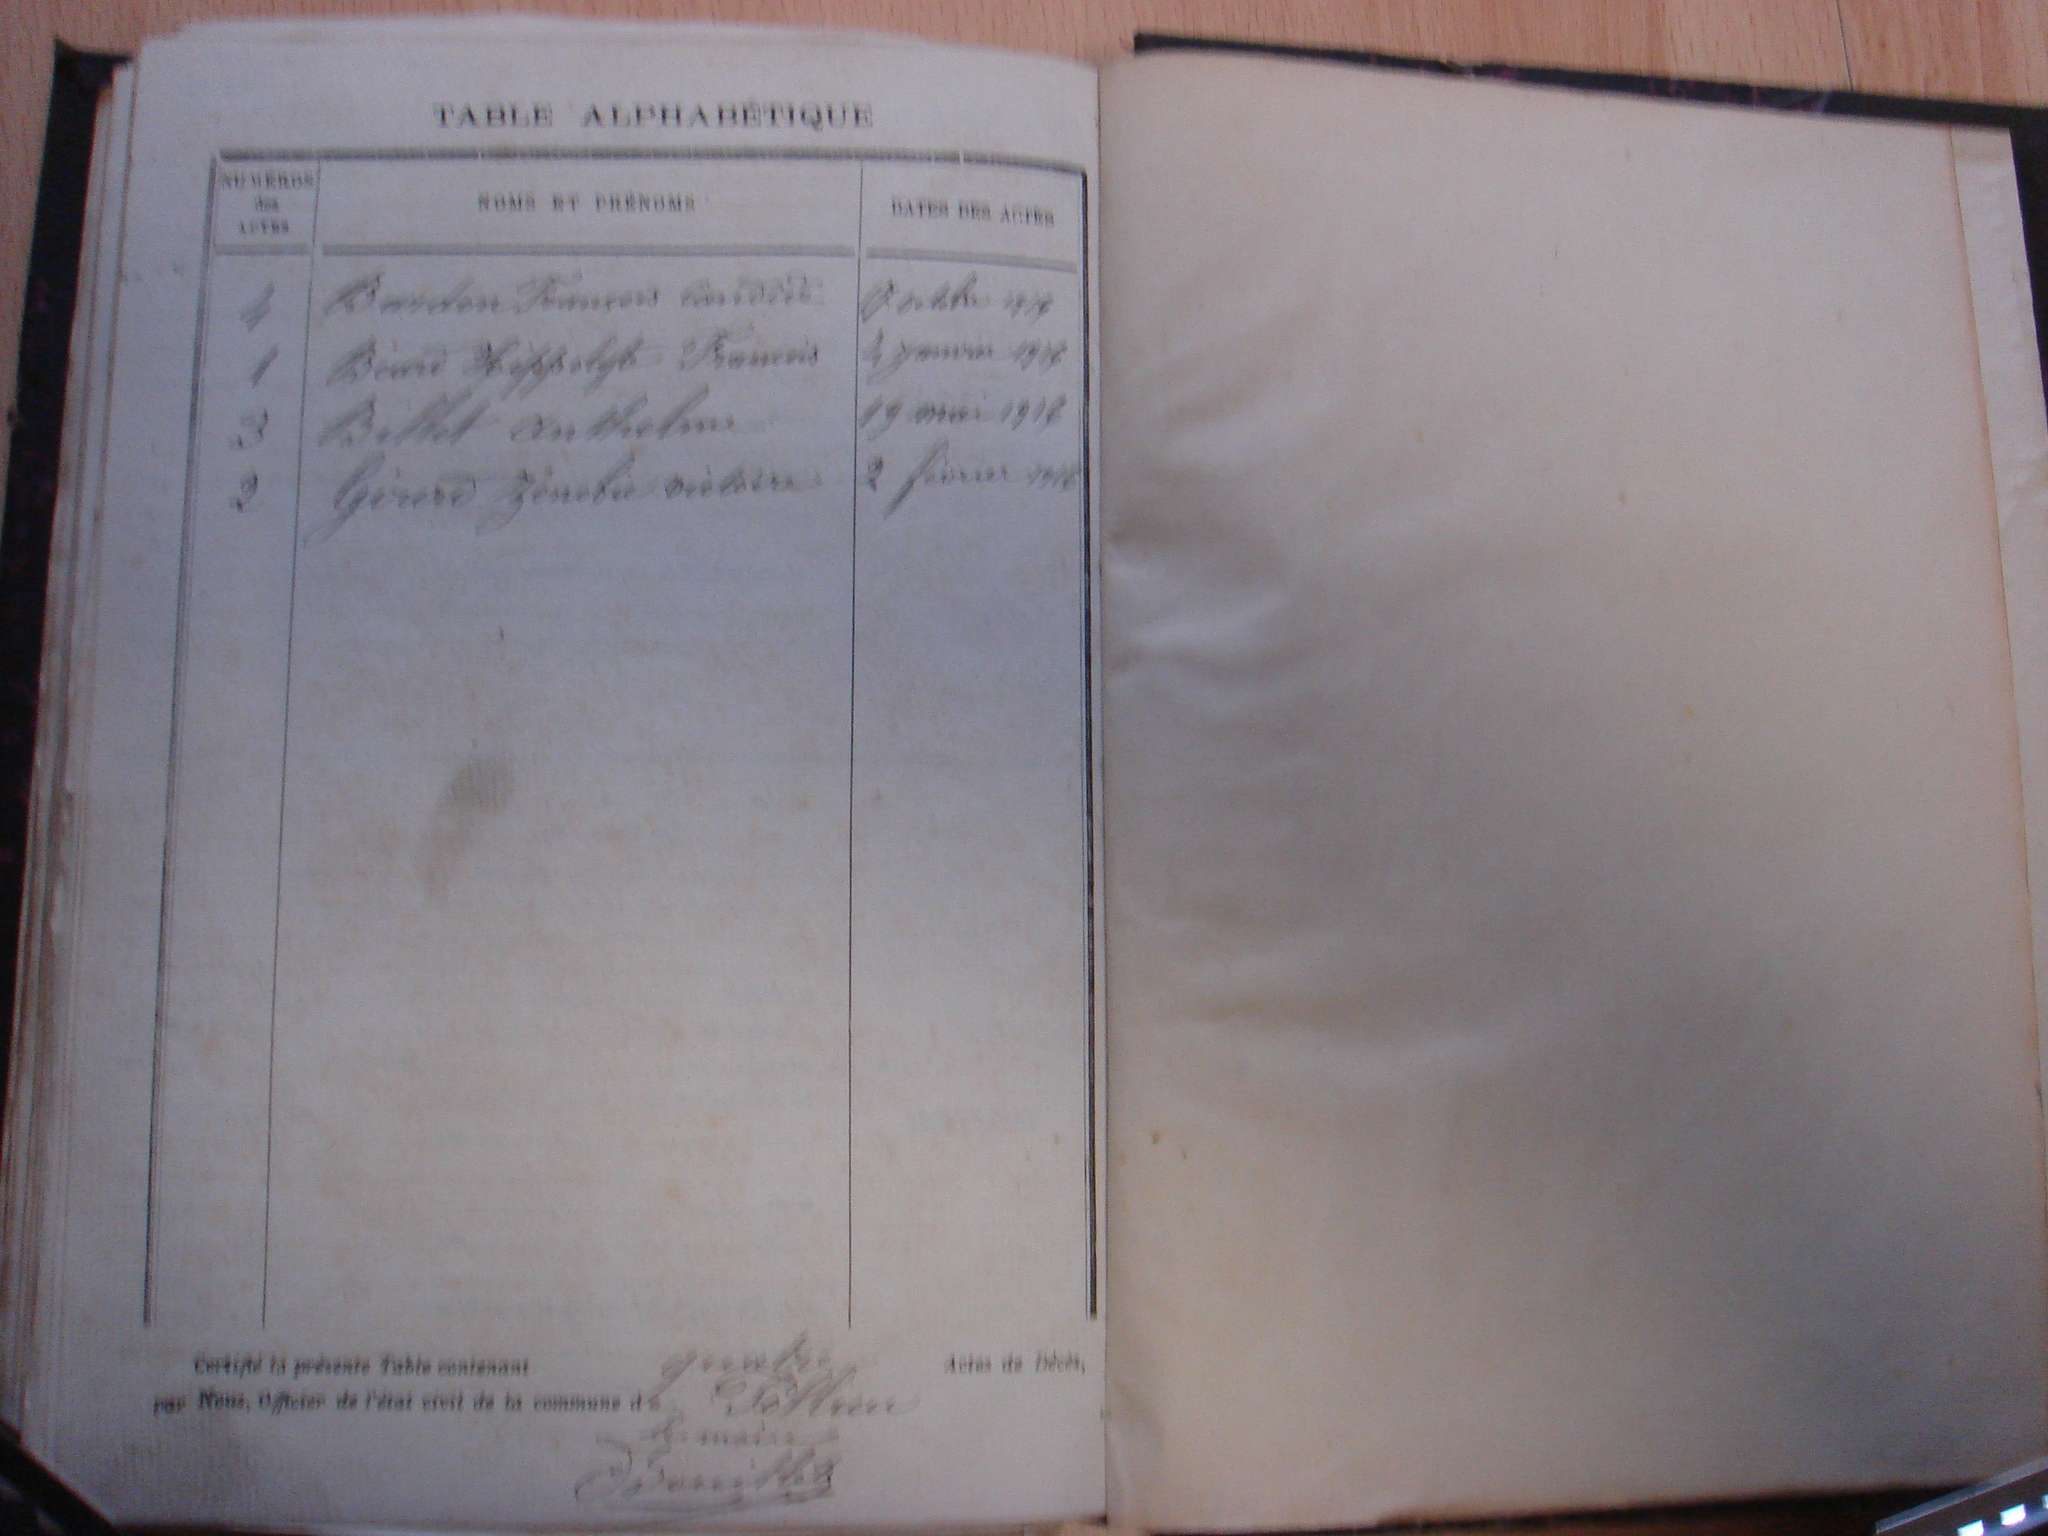 TABLE ALPHABÉTIQUE
NUMÉROS des ACTES
NOMS ET PRÉNOMS
DATES DES ACTES
4 Bardon François 8 octobre
1 Béard Hippolyte François 4 janvier 1917
3 Billet Anthelme 19 mai 1917
2 Girard Zénobie Victoire 2 février 1917
Certifié la présente Table contenant quatre Actes de Décès,
par Nous, Officier de l'état civil de la commune d
Le maire